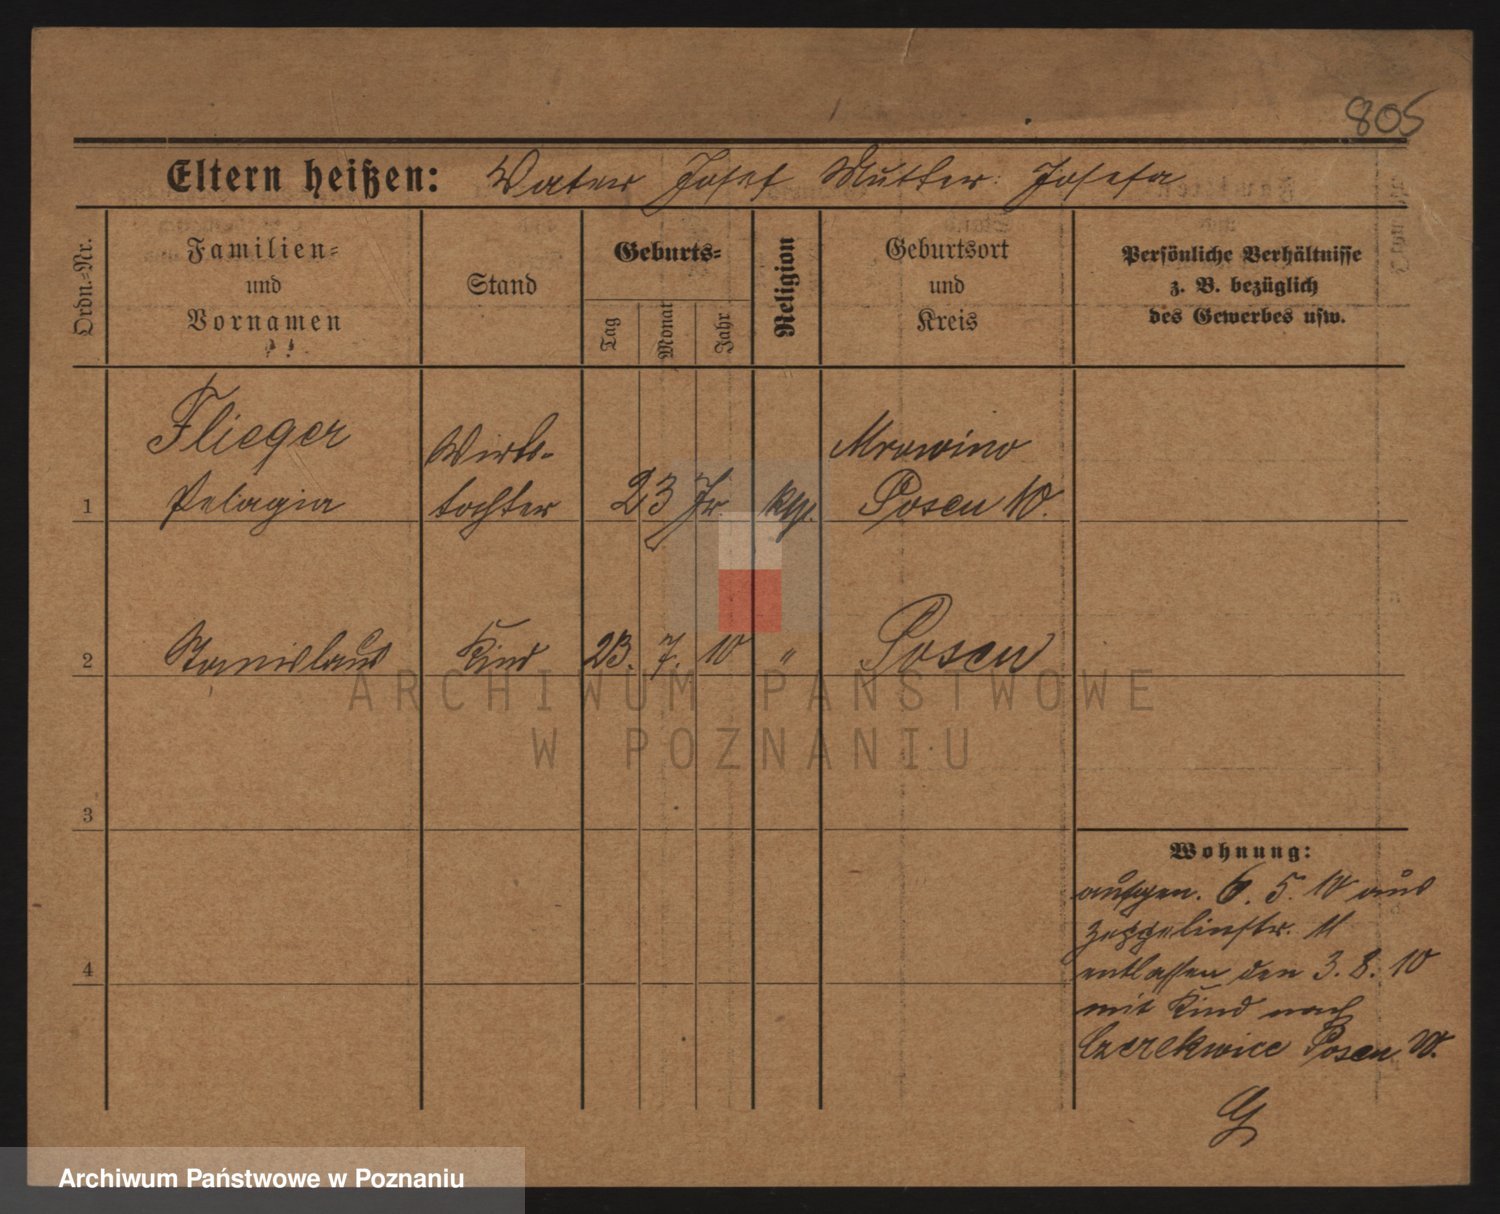 805
Eltern heißen: Vater Josef Mutter: Josefa
Ordn.-Nr.
Familien-
und
Vornamen
Stand
Geburts-
Tag
Monat
Jahr
Religion
Geburtsort
und
Kreis
Persönliche Verhältnisse
z. B. bezüglich
des Gewerbes usw.
Flieger Wirts- Mrowino
1 Pelagia tochter 23 Jr kth. Posen W.
2 Stanislaus Kind 23. 7. 10 " Posen
ARCHIWUM PAŃSTWOWE
W POZNANIU
3
Wohnung:
aufgen. 6. 5. 10 aus
Zeppelinstr. 11
4
entlassen den 3. 8. 10
mit Kind nach
Cerekwice Posen W.
Archiwum Państwowe w Poznaniu